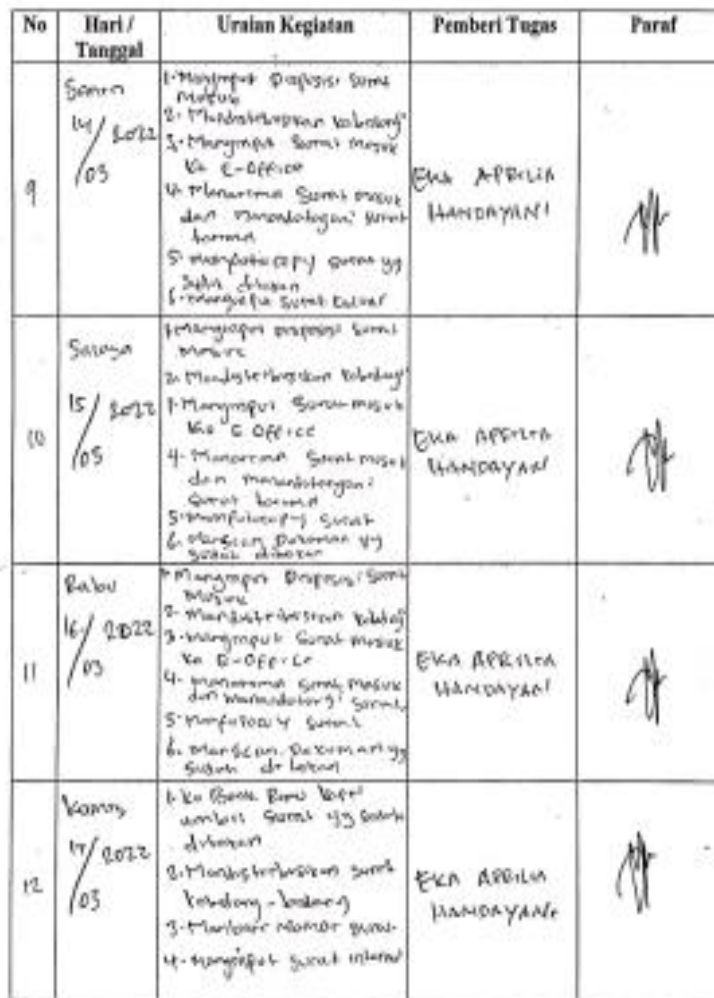 No Hari / Tanggal Uraian Kegiatan Pemberi Tugas Paraf
9
Senin
14/03 2022
1. Menginput Disposisi Surat
Masuk
2. Mendistribusikan kebidang
3. Menginput Surat Masuk
Ke E-Office
4. Menerima Surat Masuk
dan Menandatangani Surat
5. Memfotocopy Surat yg
Sudah
6. Menginput Surat Keluar
EKA APRILIA
HANDAYANI
10
Selasa
15/03 2022
1. Menginput Disposisi Surat
Masuk
2. Mendistribusikan kebidang
3. Menginput Surat Masuk
Ke E Office
4. Menerima Surat Masuk
dan Menandatangani
Surat
5. Memfotocopy Surat
6. Menscan Dokumen yg
Sudah
EKA APRILIA
HANDAYANI
11
Rabu
16/03 2022
1. Menginput Disposisi Surat
Masuk
2. Mendistribusikan kebidang
3. Menginput Surat Masuk
Ke E-Office
4. Menerima Surat Masuk
dan Menandatangi Surat
5. Memfotocopy Surat
6. Menscan Dokumen yg
Sudah
EKA APRILIA
HANDAYANI
12
Kamis
17/03 2022
1. Ke
Surat yg Sudah
2. Mendistribusikan Surat
kebidang-bidang
3. Memberi Nomor Surat
4. Menginput Surat internal
EKA APRILIA
HANDAYANI